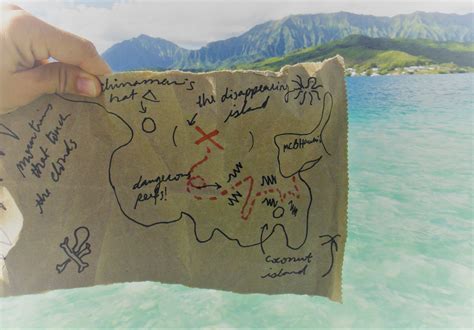 chinaman's
hat
the disappearing
island
mountains
that touch
the clouds
MCBH
dangerous
reefs!
coconut
island